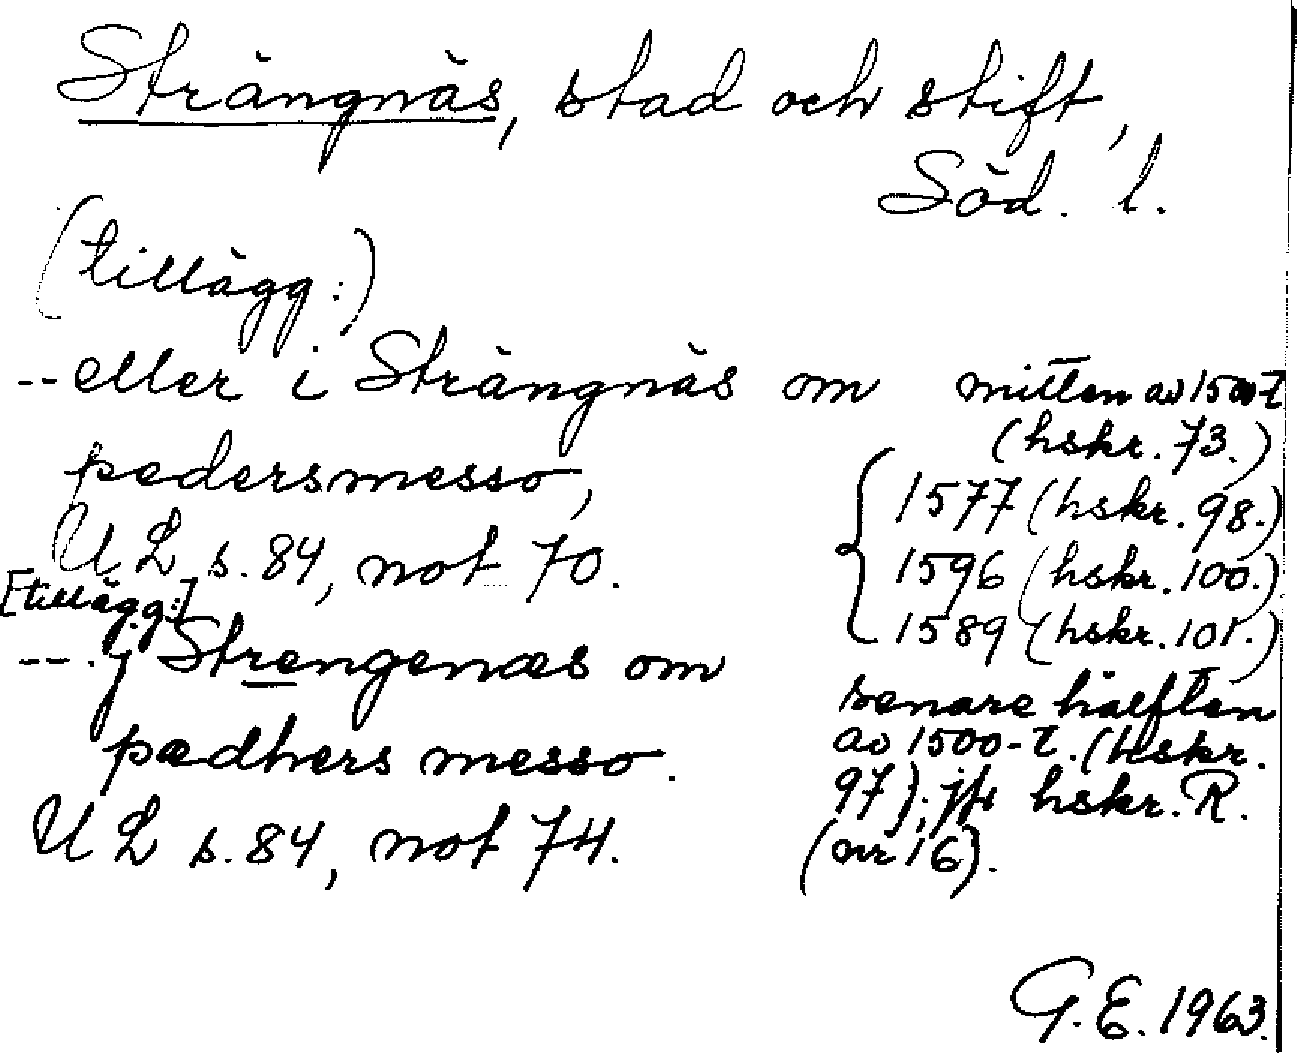 Strängnäs, stad och stift,
Söd. l.
(tillägg:)
-- eller i Strängnäs om
pedersmesso,
UL s. 84, not 70.
mitten av 1500-t
(hskr. 73.)
1577 (hskr. 98.)
1596 (hskr. 100.)
1589 (hskr. 101.)
[tillägg:]
--. j Strengenæs om
pædhers messo.
UL s. 84, not 74.
senare hälften
av 1500-t. (hskr.
97); jfr hskr. R.
(nr 16).
G. E. 1963.